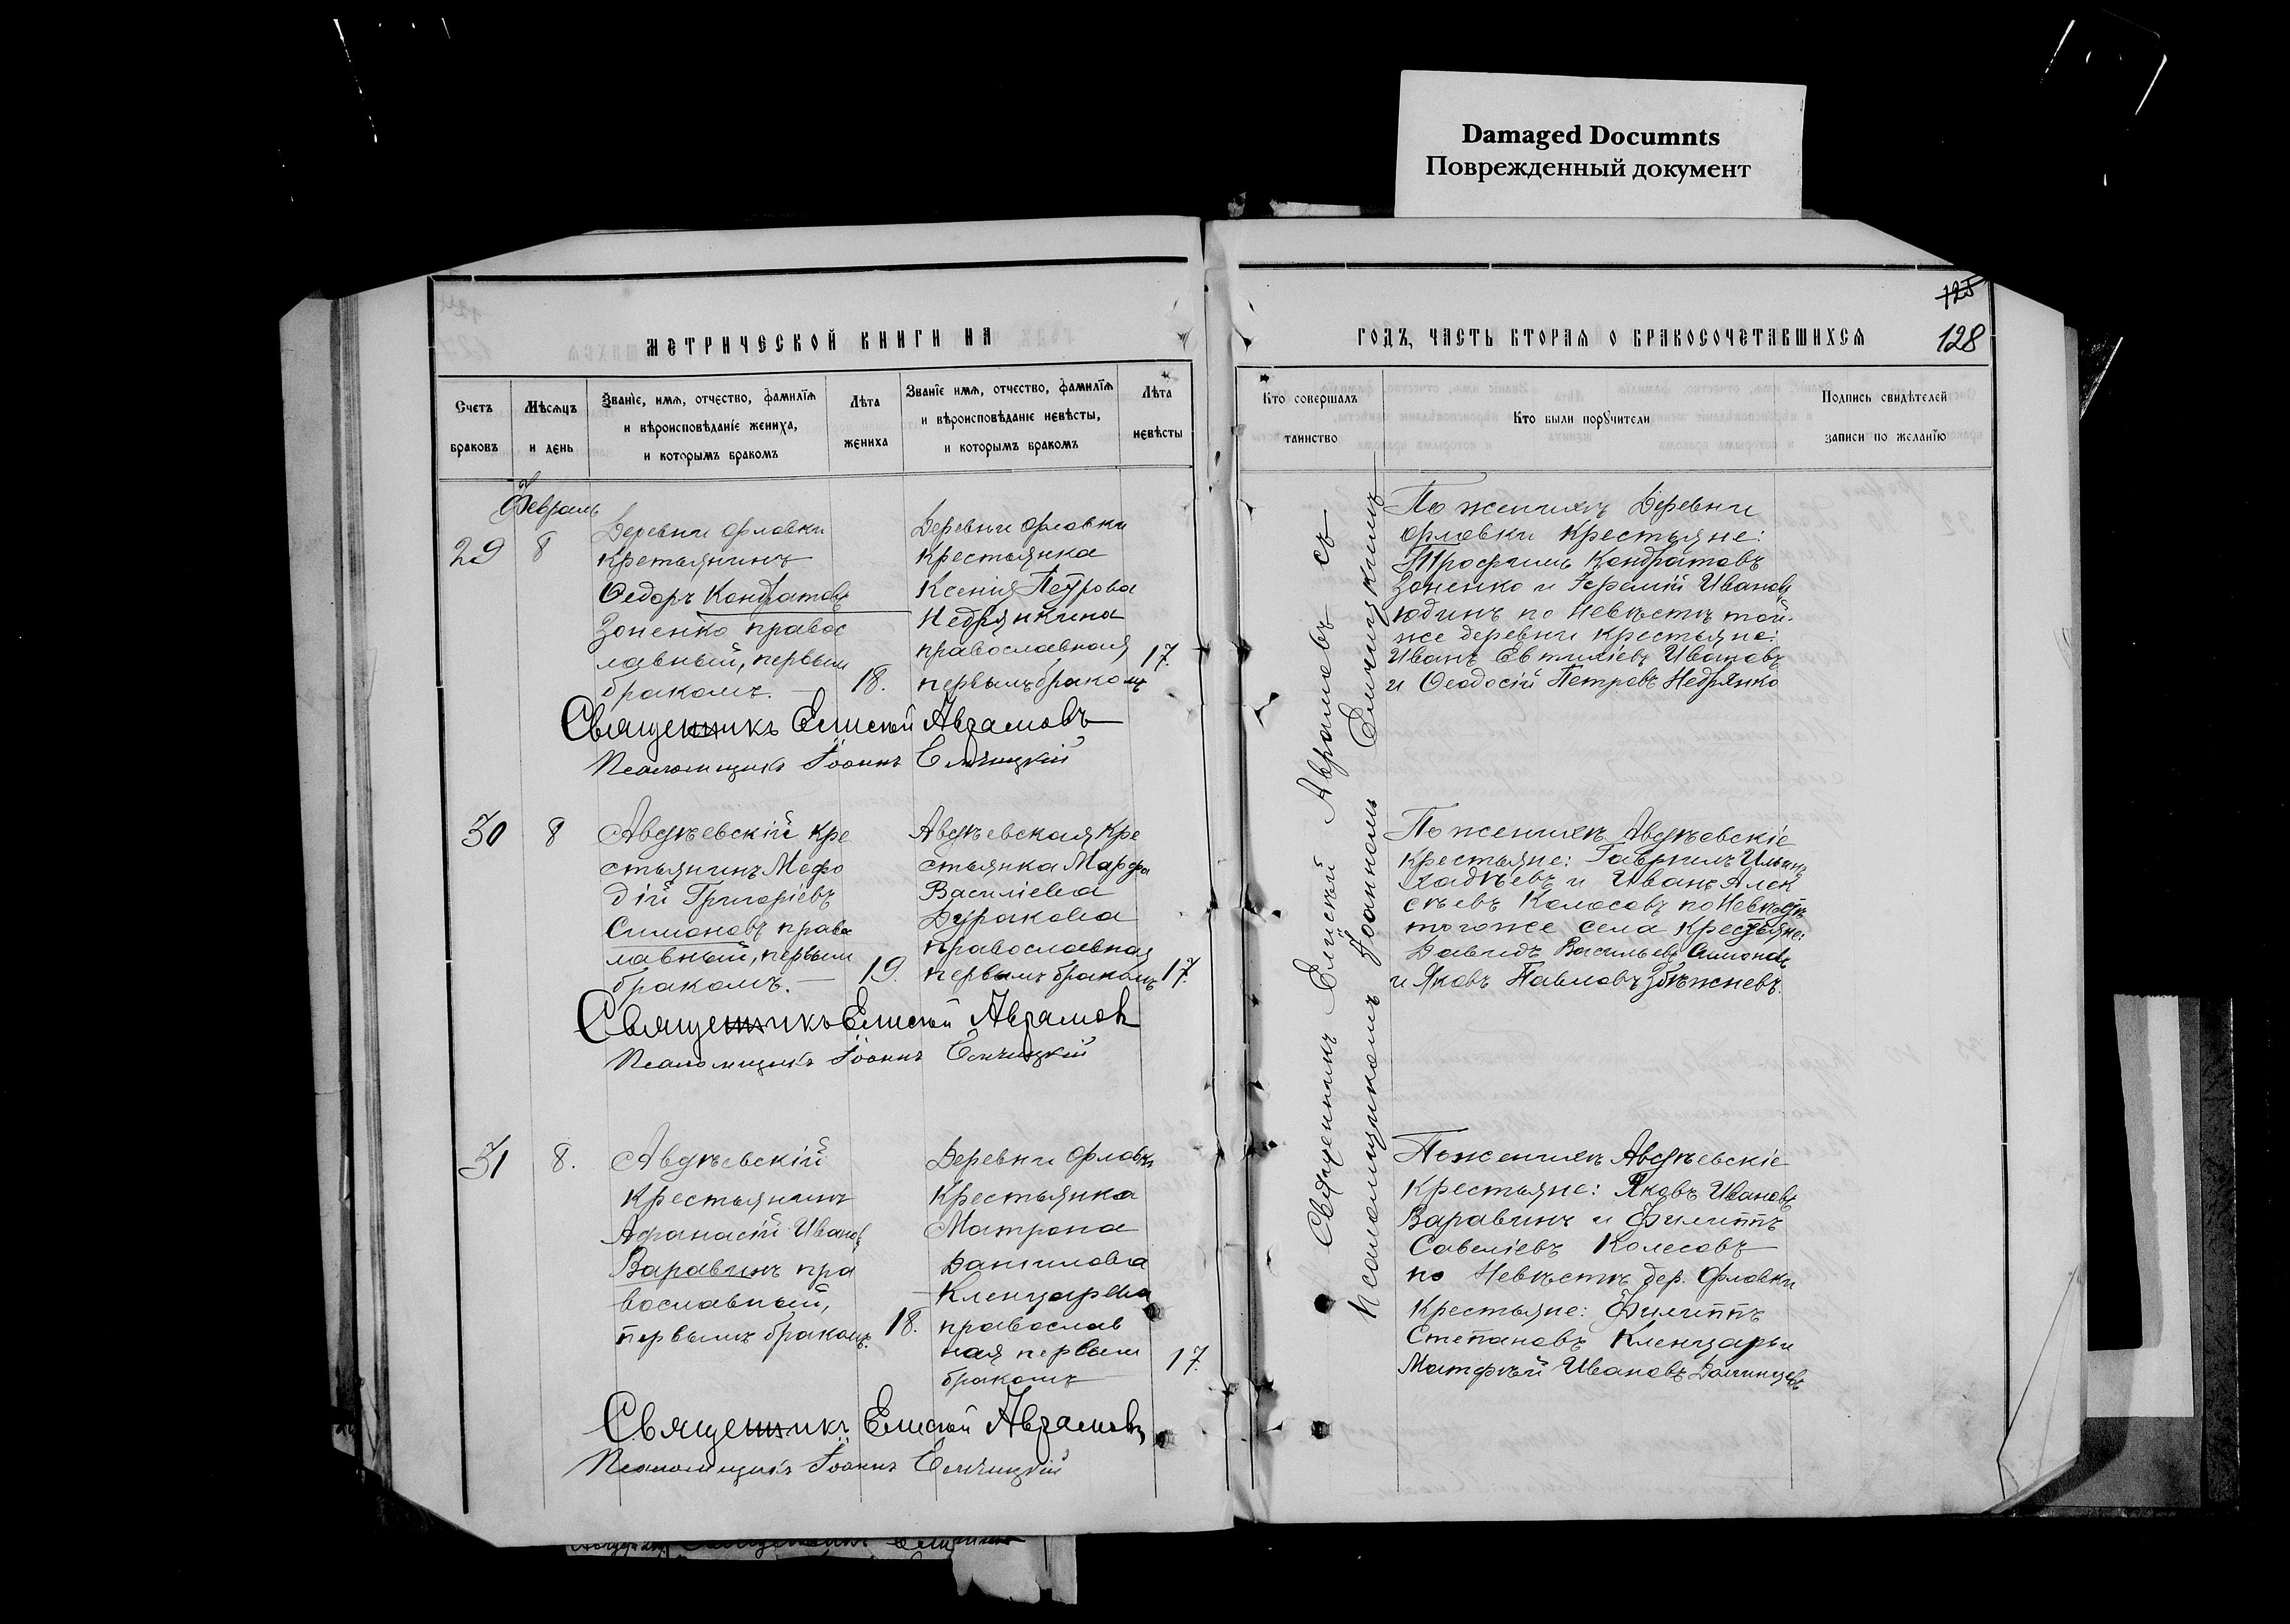 Damaged Documnts
Поврежденный документ
МЕТРИЧЕСКОЙ КНИГИ НА
Счетъ браковъ
Мѣсяцъ и день
Званіе, имя, отчество, фамилія и вѣроисповѣданіе жениха, и которымъ бракомъ
Лѣта жениха
Званіе имя, отчество, фамилія и вѣроисповѣданіе невѣсты, и которымъ бракомъ
Лѣта невѣсты
Февраль
29
8
Деревни Орловки
кретьянинъ
Ѳедоръ Кондратовъ
Зоненко правос
лавный, первым
бракомъ.
18.
Деревни Орловки
крестьянка
Ксенія Петрова
Недрянкина
православная
первымъ бракомъ
17.
Священникъ Елисей Аврамовъ
Псаломщикъ Іоаннъ Елчицкій
30
8
Авдѣевскій кре
стьянинъ Мефо
дій Григоріевъ
Симоновъ право
лавный, первым
бракомъ.
19.
Авдѣевская кре
стьянка Марфа
Василіева
Дуракова
православная
первымъ бракомъ
17.
Священникъ Елисей Аврамовъ
Псаломщикъ Іоаннъ Елчицкій
31
8.
Авдѣевскій
крестьянинъ
Афанасій Ивановъ
Варавинъ пра
вославный,
первымъ бракомъ.
18.
Деревни Орловки
крестьянка
Матрона
Даниилова
Кленцарева
православ
ная первым
бракомъ
17.
Священникъ Елисей Аврамовъ
Псаломщикъ Іоаннъ Елчицкій
125
128
ГОДЪ, ЧАСТЬ ВТОРАЯ О БРАКОСОЧЕТАВШИХСЯ
Кто совершалъ таинство
Кто были поручители
Подпись свидѣтелей записи по желанію
Священникъ Елисей Аврамовъ съ
Псаломщикомъ Іоанномъ Елчицкимъ
По женихѣ Деревни
Орловки крестьяне:
Трофимъ Кондратовъ
Зоненко и Іеремій Ивановъ
Юдинъ по невѣстѣ той-
же деревни крестьяне:
Иванъ Евтихіевъ Ивановъ
и Ѳеодосій Петровъ Недрянко
По женихѣ Авдѣевскіе
крестьяне: Гавриилъ Ильинъ
и Иванъ Алек
сѣевъ Колосовъ по невѣстѣ
тогоже села крестьяне:
Давидъ Васильевъ Симоновъ
и Яковъ Павловъ
По женихѣ Авдѣевскіе
крестьяне: Яковъ Ивановъ
Варавинъ и Филиппъ
Савеліевъ Колесовъ
по невѣстѣ дер. Орловки
крестьяне: Филиппъ
Степановъ Кленцарь и
Матфѣй Ивановъ